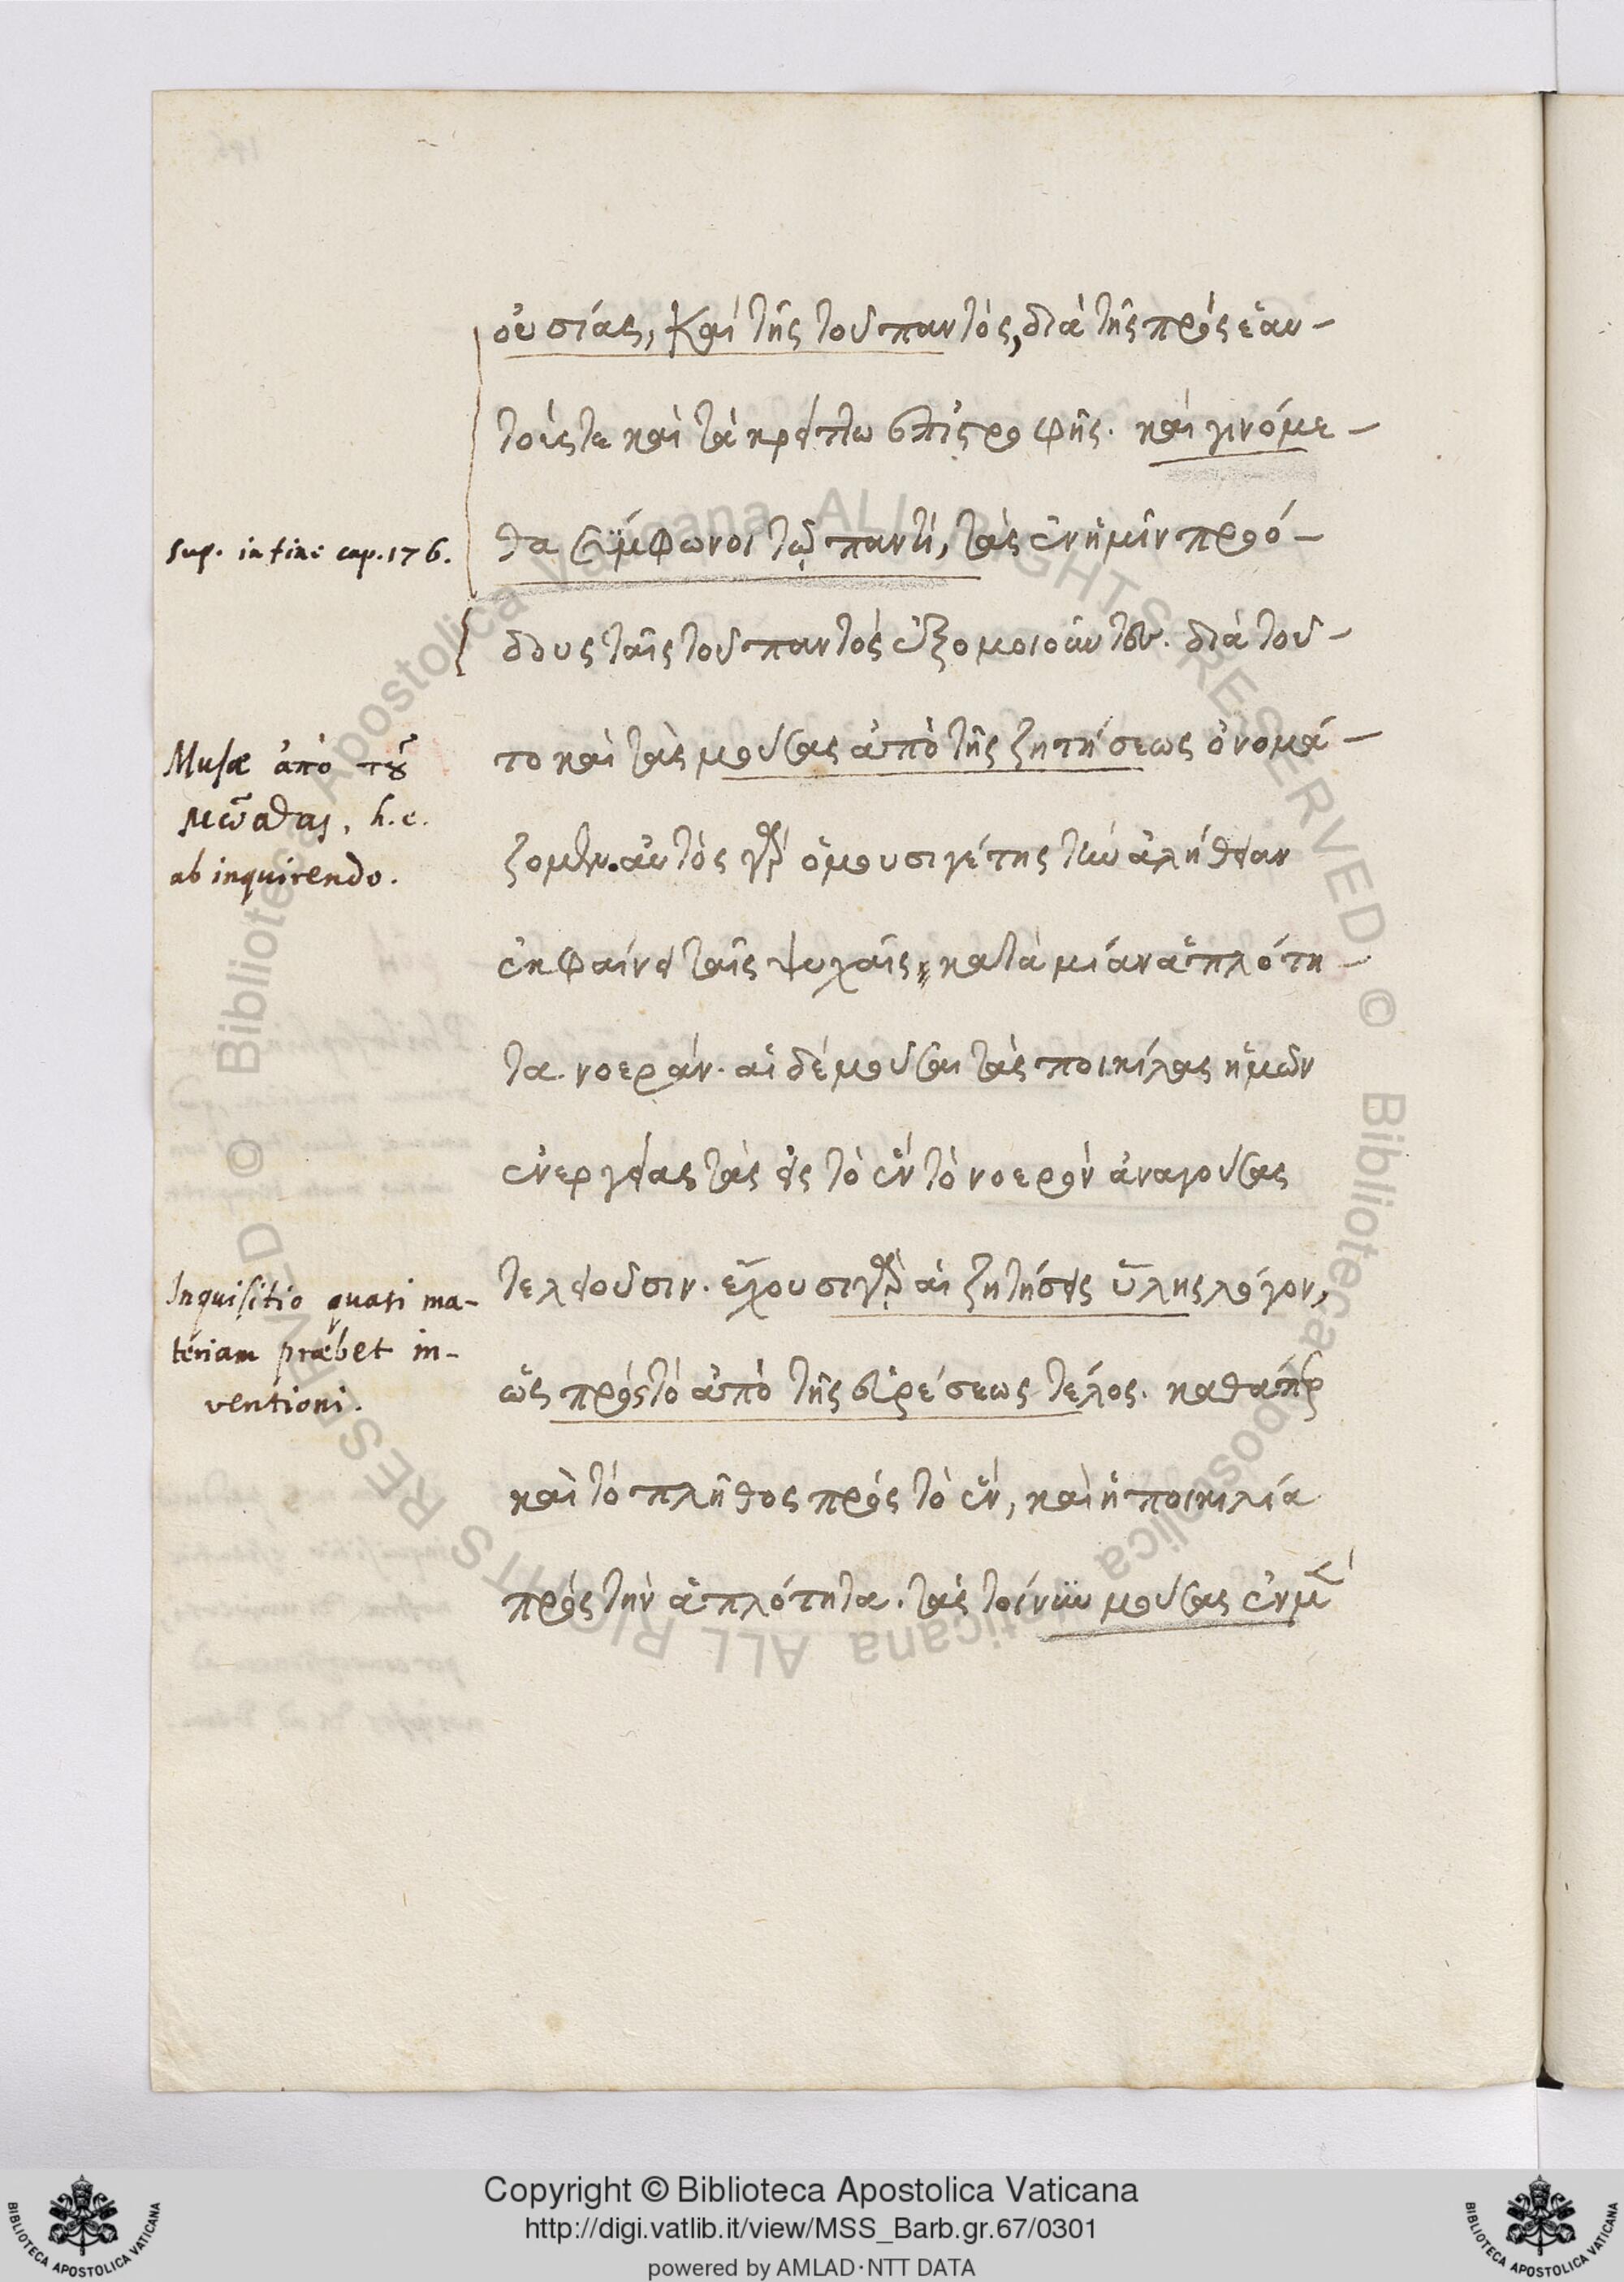 οὐσίας, καὶ τῆς τοῦ παντὸς, διὰ τῆς πρὸς ἑαυ-
τούς τε καὶ τὰ κρείττω ἐπιστροφῆς. καὶ γινόμε-
θα σύμφωνοι τῷ παντὶ, τὰς ἐν ἡμῖν προό-
δους ταῖς τοῦ παντὸς ἐξομοιοῦντες. διὰ τοῦ-
το καὶ τὰς μούσας ἀπὸ τῆς ζητήσεως ὀνομά-
ζομεν. αὐτὸς γὰρ ὁ μουσιγέτης τὴν ἀλήθειαν
ἐκφαίνει ταῖς ψυχαῖς, κατὰ μίαν ἁπλότη-
τα νοεράν. αἱ δὲ μοῦσαι τὰς ποικίλας ἡμῶν
ἐνεργείας τὰς εἰς τὸ ἓν τὸ νοερὸν ἀναγούσας
τελειοῦσιν. ἔχουσι γὰρ αἱ ζητήσεις ὕλης λόγον,
ὡς πρὸς τὸ ἀπὸ τῆς εὑρέσεως τέλος. καθάπερ
καὶ τὸ πλῆθος πρὸς τὸ ἓν, καὶ ἡ ποικιλία
πρὸς τὴν ἁπλότητα. τὰς τοίνυν μούσας ἐν μὲν
sup. in fine cap. 176.
Musæ ἀπὸ τοῦ
μῶσθαι, h.e.
ab inquirendo.
Inquisitio quasi ma-
teriam præbet in-
ventioni.
Copyright © Biblioteca Apostolica Vaticana
http://digi.vatlib.it/view/MSS_Barb.gr.67/0301
powered by AMLAD·NTT DATA
BIBLIOTECA APOSTOLICA VATICANA
BIBLIOTECA APOSTOLICA VATICANA
© Biblioteca Apostolica Vaticana ALL RIGHTS RESERVED
© Biblioteca Apostolica Vaticana ALL RIGHTS RESERVED